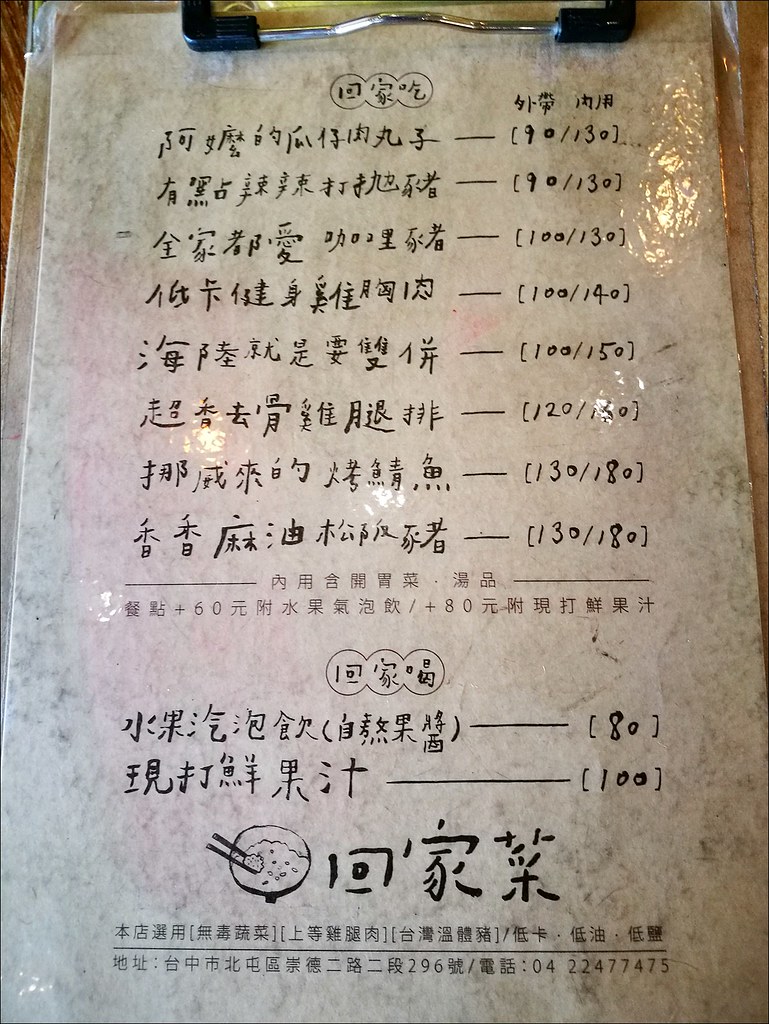 回家吃
外帶 內用
阿嬤的瓜仔肉丸子 — [90/130]
有點辣辣打拋豬 — [90/130]
全家都愛 咖哩豬 — [100/130]
低卡健身雞胸肉 — [100/140]
海陸就是要雙併 — [100/150]
超香去骨雞腿排 — [120/
挪威來的 烤鯖魚 — [130/180]
香香麻油松阪豬 — [130/180]
內用含開胃菜．湯品
餐點+60元附水果氣泡飲/+80元附現打鮮果汁
回家喝
水果汽泡飲(自熬果醬) — [80]
現打鮮果汁 — [100]
回家菜
本店選用[無毒蔬菜][上等雞腿肉][台灣溫體豬]/低卡．低油．低鹽
地址:台中市北屯區崇德二路二段296號/電話:04 22477475